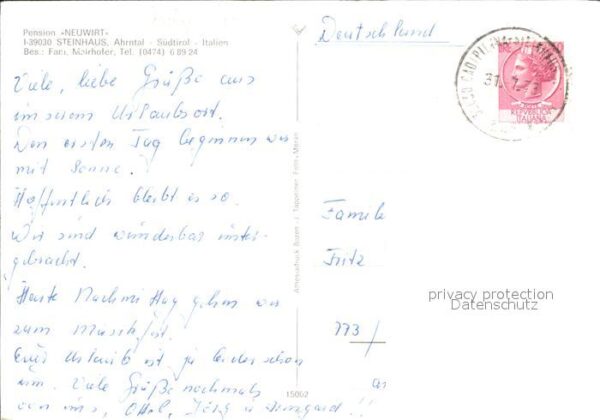 Pension «NEUWIRT»
I-39030 STEINHAUS, Ahrntal - Südtirol - Italien
Bes.: Fam. Mairhofer, Tel. (0474) 6 89 24
Viele, liebe Grüße aus
unserem Urlaubsort.
Den ersten Tag beginnen wir
mit Sonne.
Hoffentlich bleibt es so.
Wir sind wunderbar unter-
gebracht.
Heute Nachmittag gehen wir
zum Musikfest.
Euer Urlaub ist ja leider schon
um. Viele Grüße nochmals
von uns, Jörg u. Irmgard !!!
Amonndruck Bozen - J. Tappeiner, Foto, Meran
15002
Deutschland
REPVBBLICA
ITALIANA
31.
Familie
Fritz
privacy protection
Datenschutz
773/